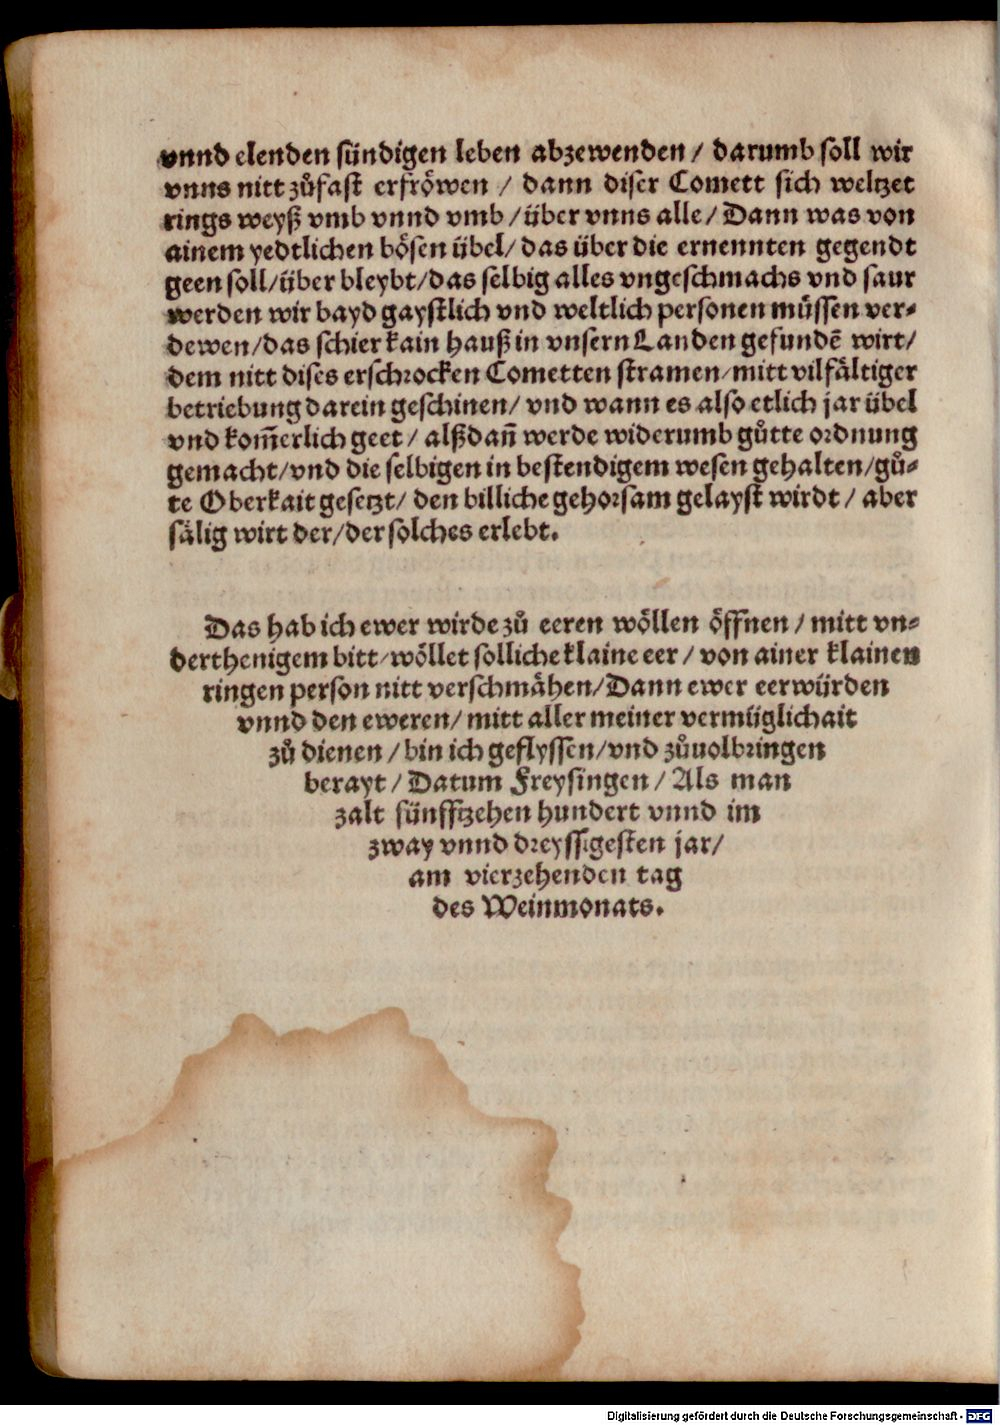 vnnd elenden sündigen leben abzewenden / darumb soll wir
vnns nitt zůfast erfröwen / dann diser Comett sich weltzet
rings weyß vmb vnnd vmb / über vnns alle / Dann was von
ainem yedtlichen bösen übel / das über die ernennten gegendt
geen soll / über bleybt / das selbig alles vngeschmachs vnd saur
werden wir bayd gaystlich vnd weltlich personen müssen ver⸗
dewen / das schier kain hauß in vnsern Landen gefundē wirt /
dem nitt dises erschrocken Cometten stramen / mitt vilfältiger
betriebung darein geschinen / vnd wann es also etlich jar übel
vnd kom̄erlich geet / alßdan̄ werde widerumb gůtte ordnung
gemacht / vnd die selbigen in bestendigem wesen gehalten / gů⸗
te Oberkait gesetzt / den billiche gehorsam gelayst wirdt / aber
sälig wirt der / der solches erlebt.
Das hab ich ewer wirde zů eeren wöllen öffnen / mitt vn⸗
derthenigem bitt / wöllet solliche klaine eer / von ainer klainen
ringen person nitt verschmähen / Dann ewer eerwürden
vnnd den eweren / mitt aller meiner vermüglichait
zů dienen / bin ich geflyssen / vnd zůuolbringen
berayt / Datum Freysingen / Als man
zalt fünfftzehen hundert vnnd im
zway vnnd dreyssigesten jar /
am vierzehenden tag
des Weinmonats.
Digitalisierung gefördert durch die Deutsche Forschungsgemeinschaft - DFG